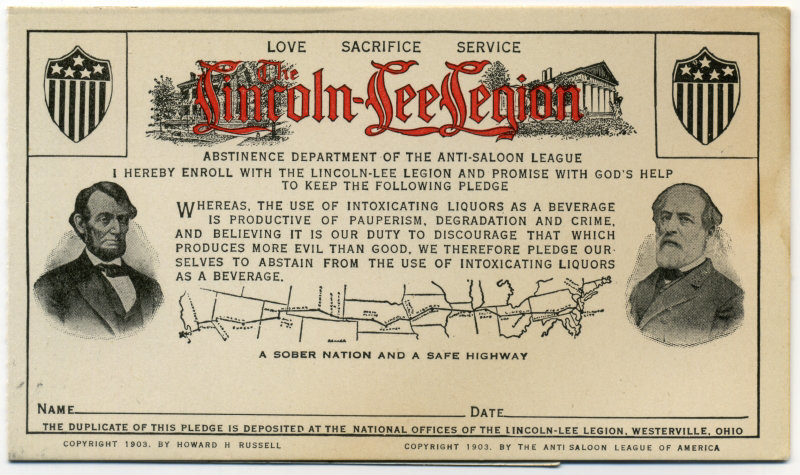 LOVE SACRIFICE SERVICE
The
Lincoln-Lee Legion
ABSTINENCE DEPARTMENT OF THE ANTI-SALOON LEAGUE
I HEREBY ENROLL WITH THE LINCOLN-LEE LEGION AND PROMISE WITH GOD'S HELP
TO KEEP THE FOLLOWING PLEDGE
WHEREAS, THE USE OF INTOXICATING LIQUORS AS A BEVERAGE
IS PRODUCTIVE OF PAUPERISM, DEGRADATION AND CRIME,
AND BELIEVING IT IS OUR DUTY TO DISCOURAGE THAT WHICH
PRODUCES MORE EVIL THAN GOOD, WE THEREFORE PLEDGE OUR-
SELVES TO ABSTAIN FROM THE USE OF INTOXICATING LIQUORS
AS A BEVERAGE.
A SOBER NATION AND A SAFE HIGHWAY
NAME DATE
THE DUPLICATE OF THIS PLEDGE IS DEPOSITED AT THE NATIONAL OFFICES OF THE LINCOLN-LEE LEGION, WESTERVILLE, OHIO
COPYRIGHT 1903. BY HOWARD H RUSSELL COPYRIGHT 1903. BY THE ANTI SALOON LEAGUE OF AMERICA